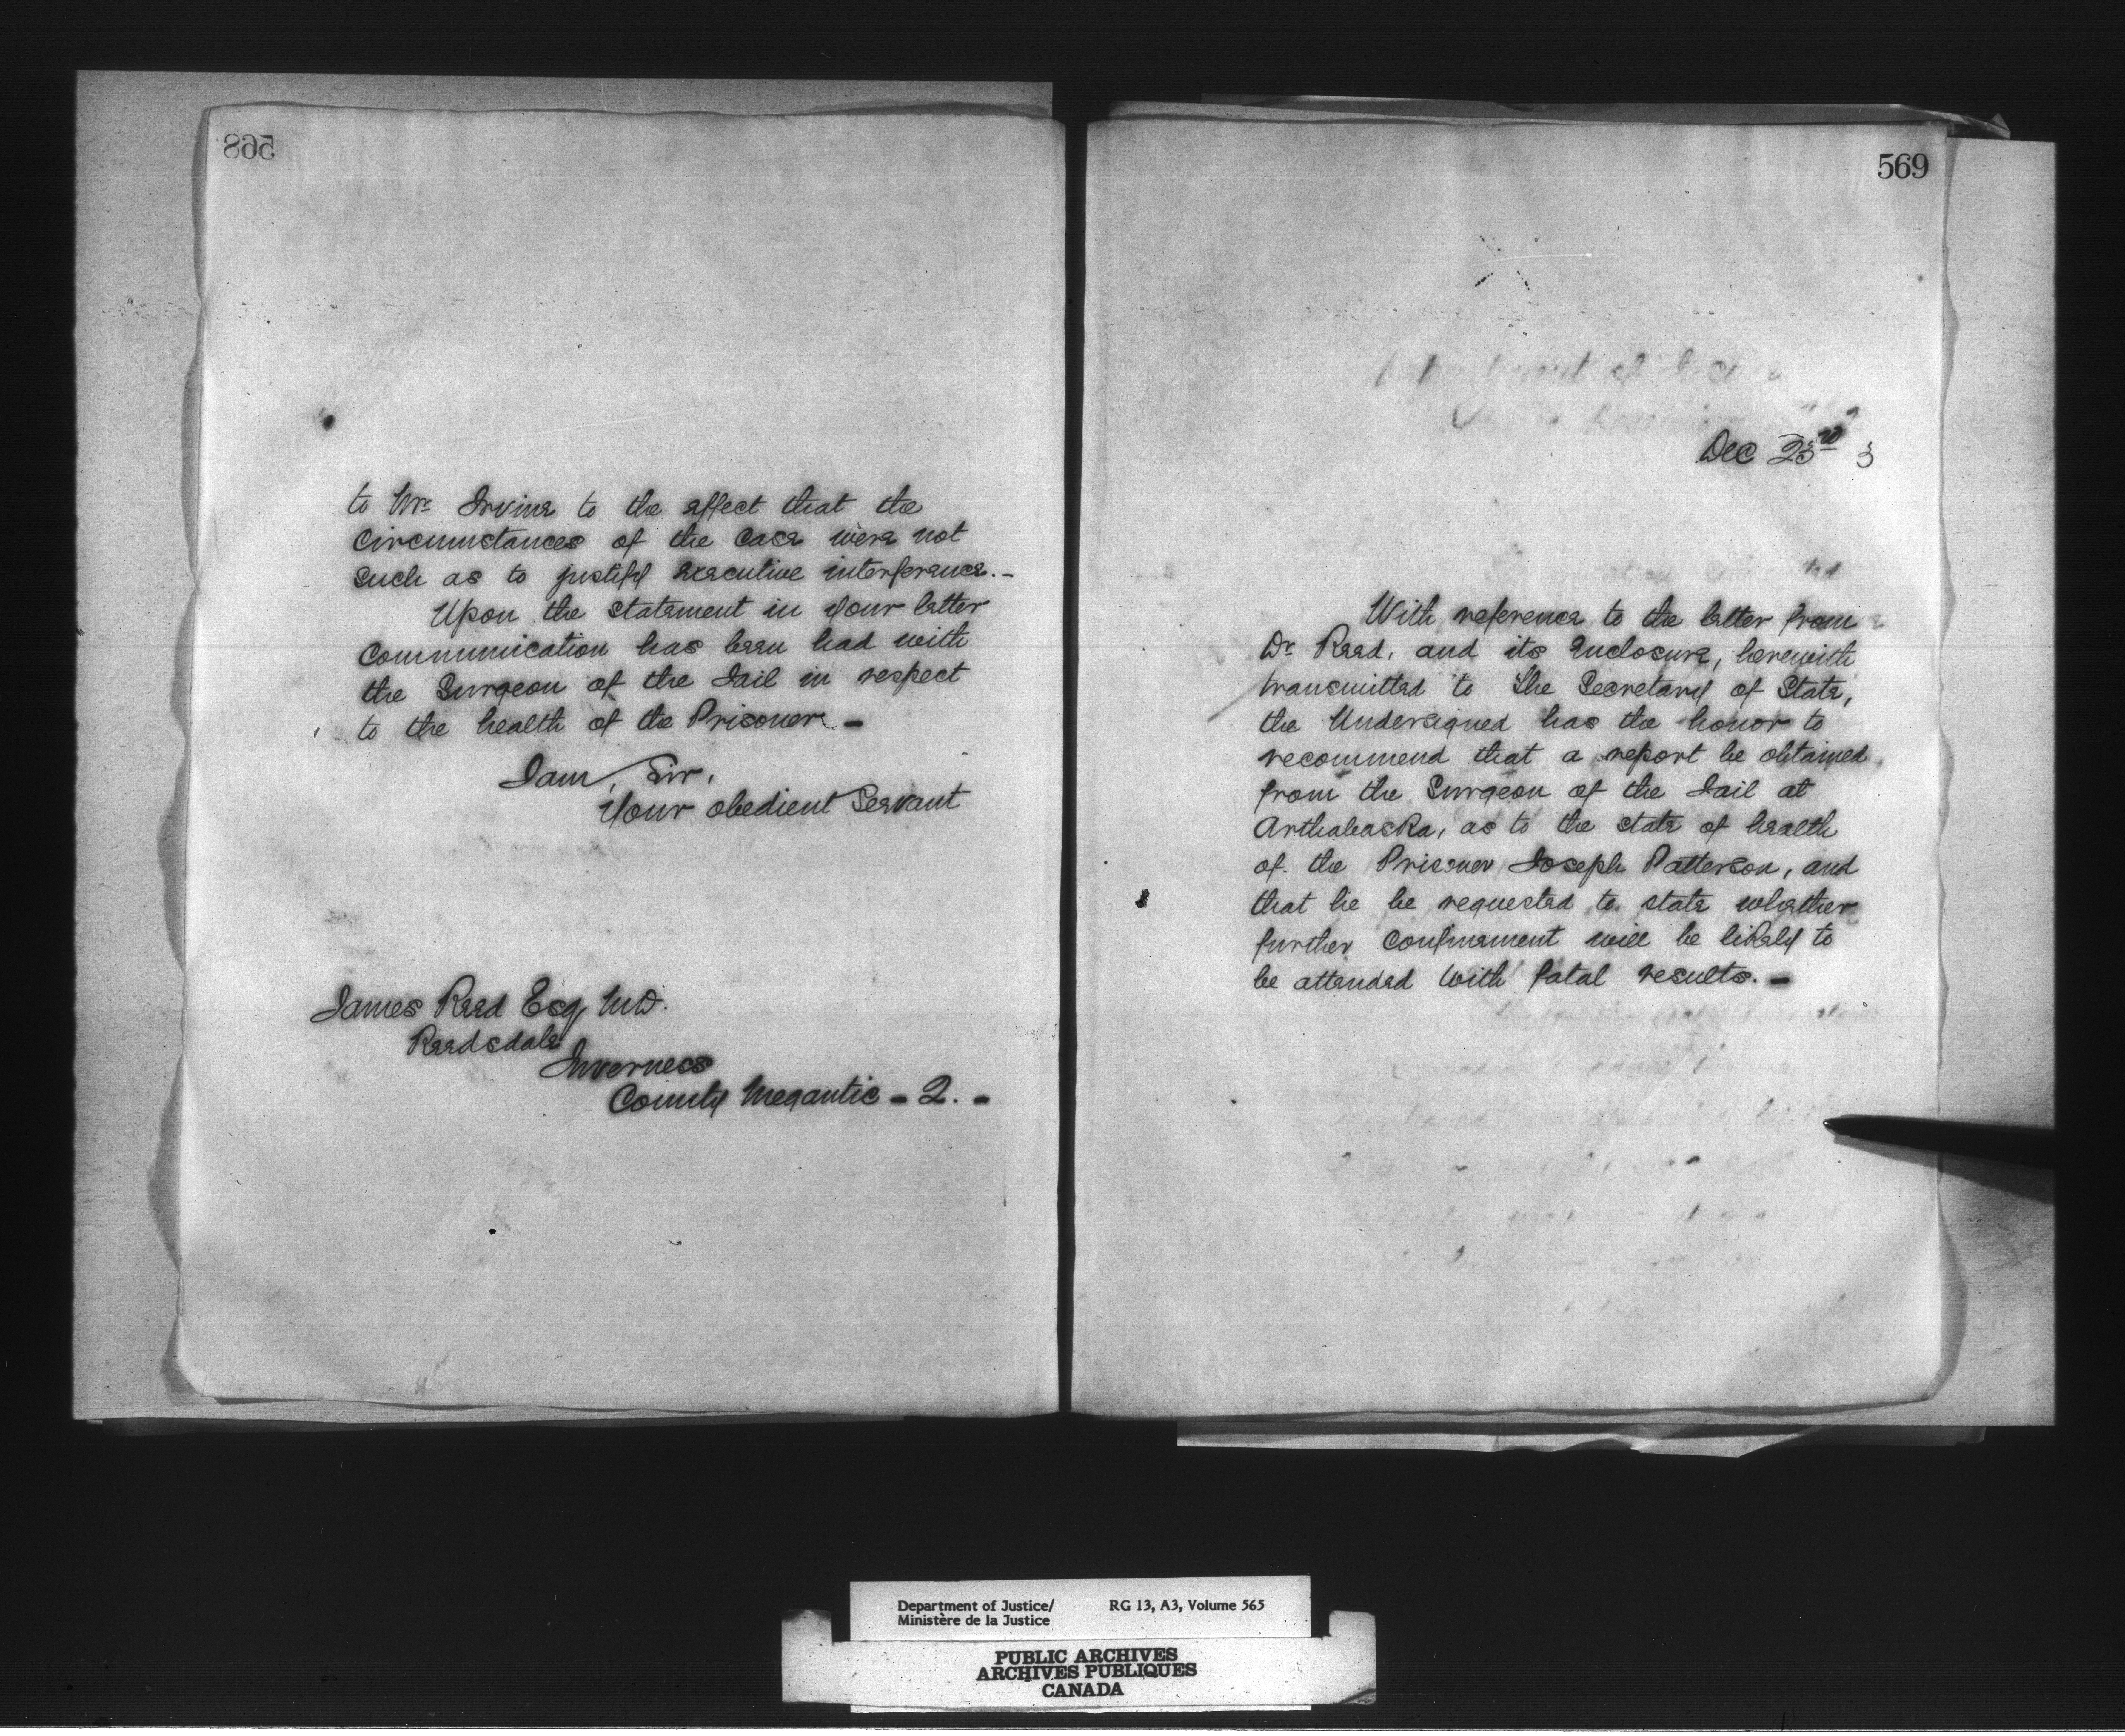 568
to Mr. Irvine to the effect that the
circumstances of the case were not
such as to justify executive interference.-
Upon the statement in your letter
communication has been had with
the Surgeon of the Jail in respect
to the health of the Prisoner -
I am, Sir,
Your obedient Servant
James Reed Esq. M.D.
Reedsdale
Inverness
County Megantic - Q. -
569
Dec 23rd 3
With reference to the letter from
Dr. Reed, and its enclosure, herewith
transmitted to the Secretary of State,
the Undersigned has the honor to
recommend that a report be obtained
from the Surgeon of the Jail at
Arthabaska, as to the state of health
of the Prisoner Joseph Patterson, and
that he be requested to state whether
further confinement will be likely to
be attended with fatal results. -
Department of Justice/ RG 13, A3, Volume 565
Ministère de la Justice
PUBLIC ARCHIVES
ARCHIVES PUBLIQUES
CANADA